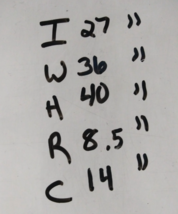 I 27"
W 36"
H 40"
R 8.5"
C 14"